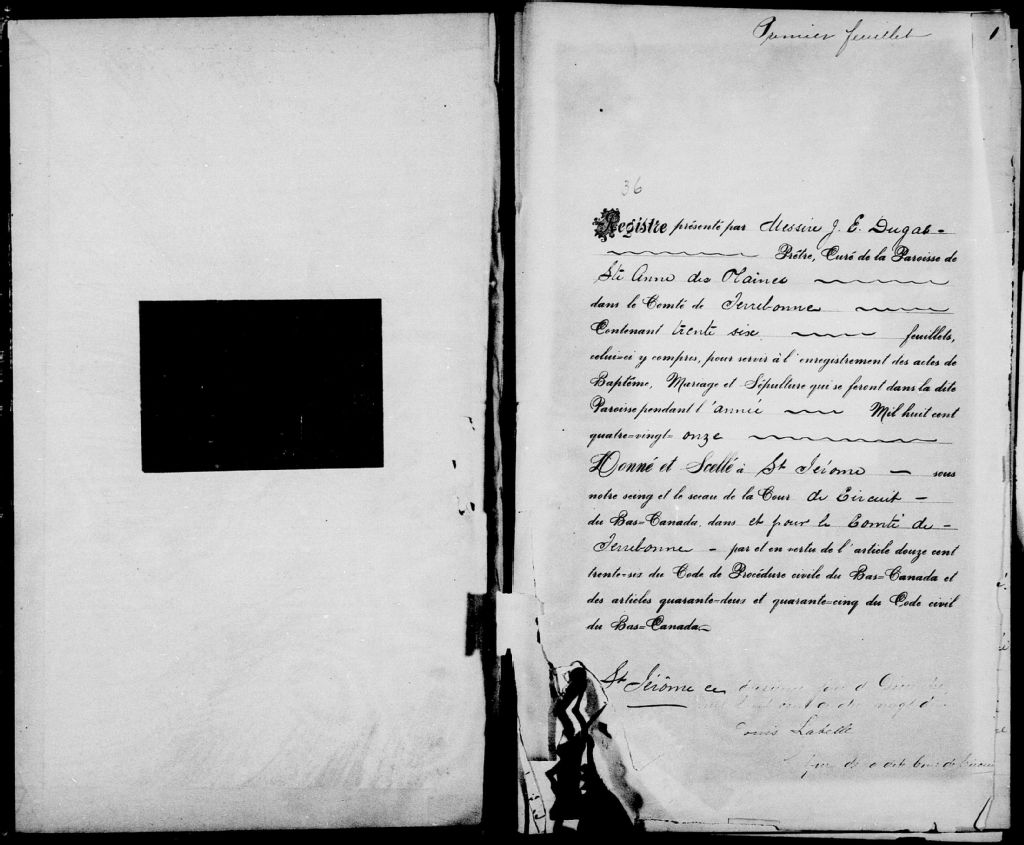 Premier feuillet
1
36
Registre présenté par Messire J. E. Dugas -
Prêtre, Curé de la Paroisse de
Ste Anne des Plaines
dans le Comté de Terrebonne
Contenant trente six feuillets,
celui-ci y compris, pour servir à l'enregistrement des actes de
Baptême, Mariage et Sépulture qui se feront dans la dite
Paroisse pendant l'année Mil huit cent
quatre-vingt- onze
Donné et Scellé à St Jérome - sous
notre seing et le sceau de la Cour de Circuit -
du Bas=Canada, dans et pour le Comté de -
Terrebonne - par et en vertu de l'article douze cent
trente-six du Code de Procédure civile du Bas=Canada et
des articles quarante-deux et quarante-cinq du Code civil
du Bas=Canada.
St Jérôme ce
Labelle